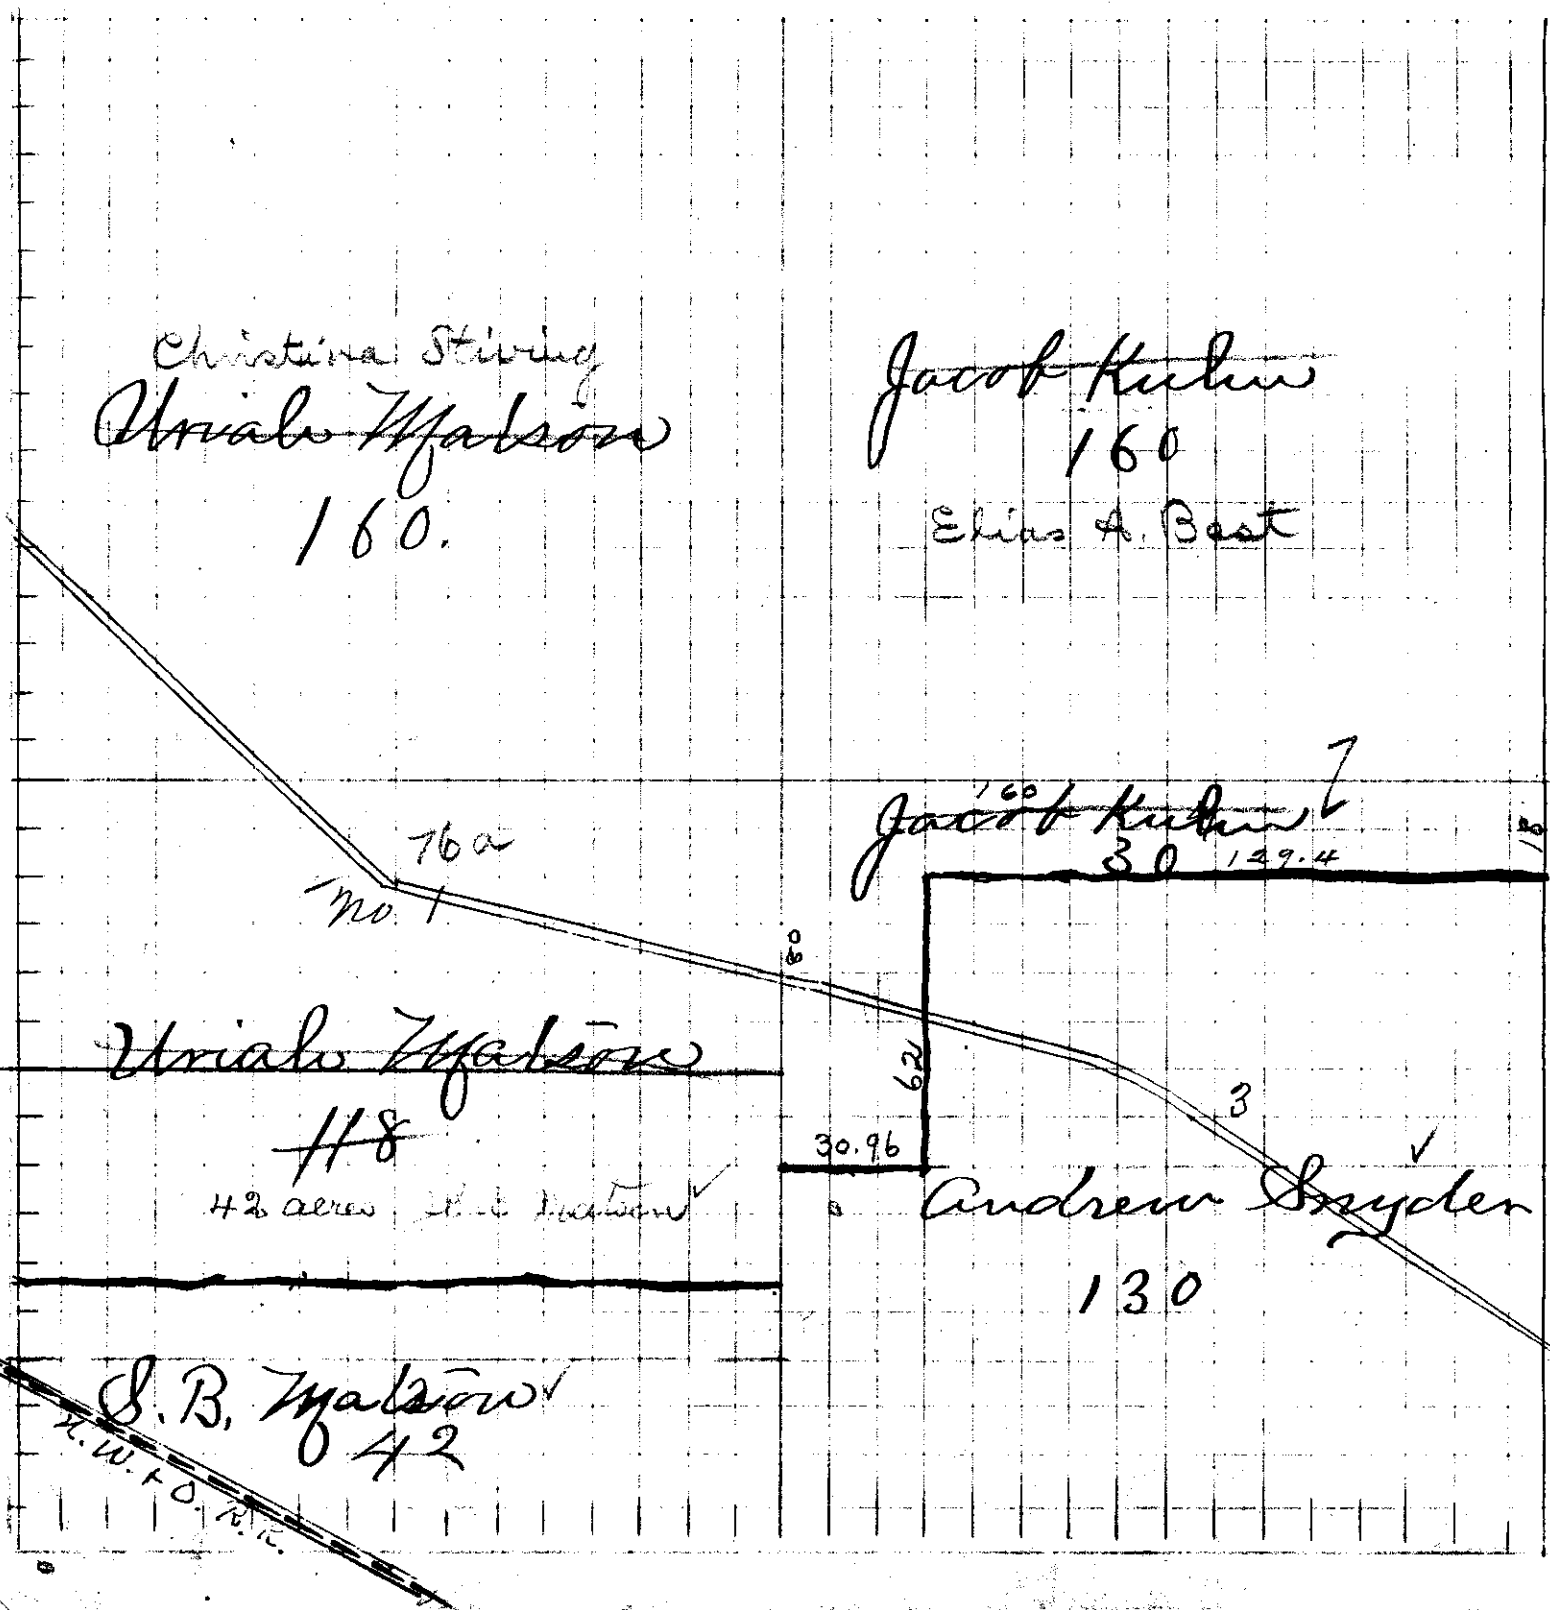 Christina Stiving
Uriah Matson
160.
Jacob Kuhn
160
Elias A. Bast
160
Jacob Kuhn
30 129.4
18
76 a
No 1
80
Uriah Matson
118
42 acres Matson
62
30.96
3
Andrew Snyder
130
S. B. Matson
42
N. W. & O. R. R.